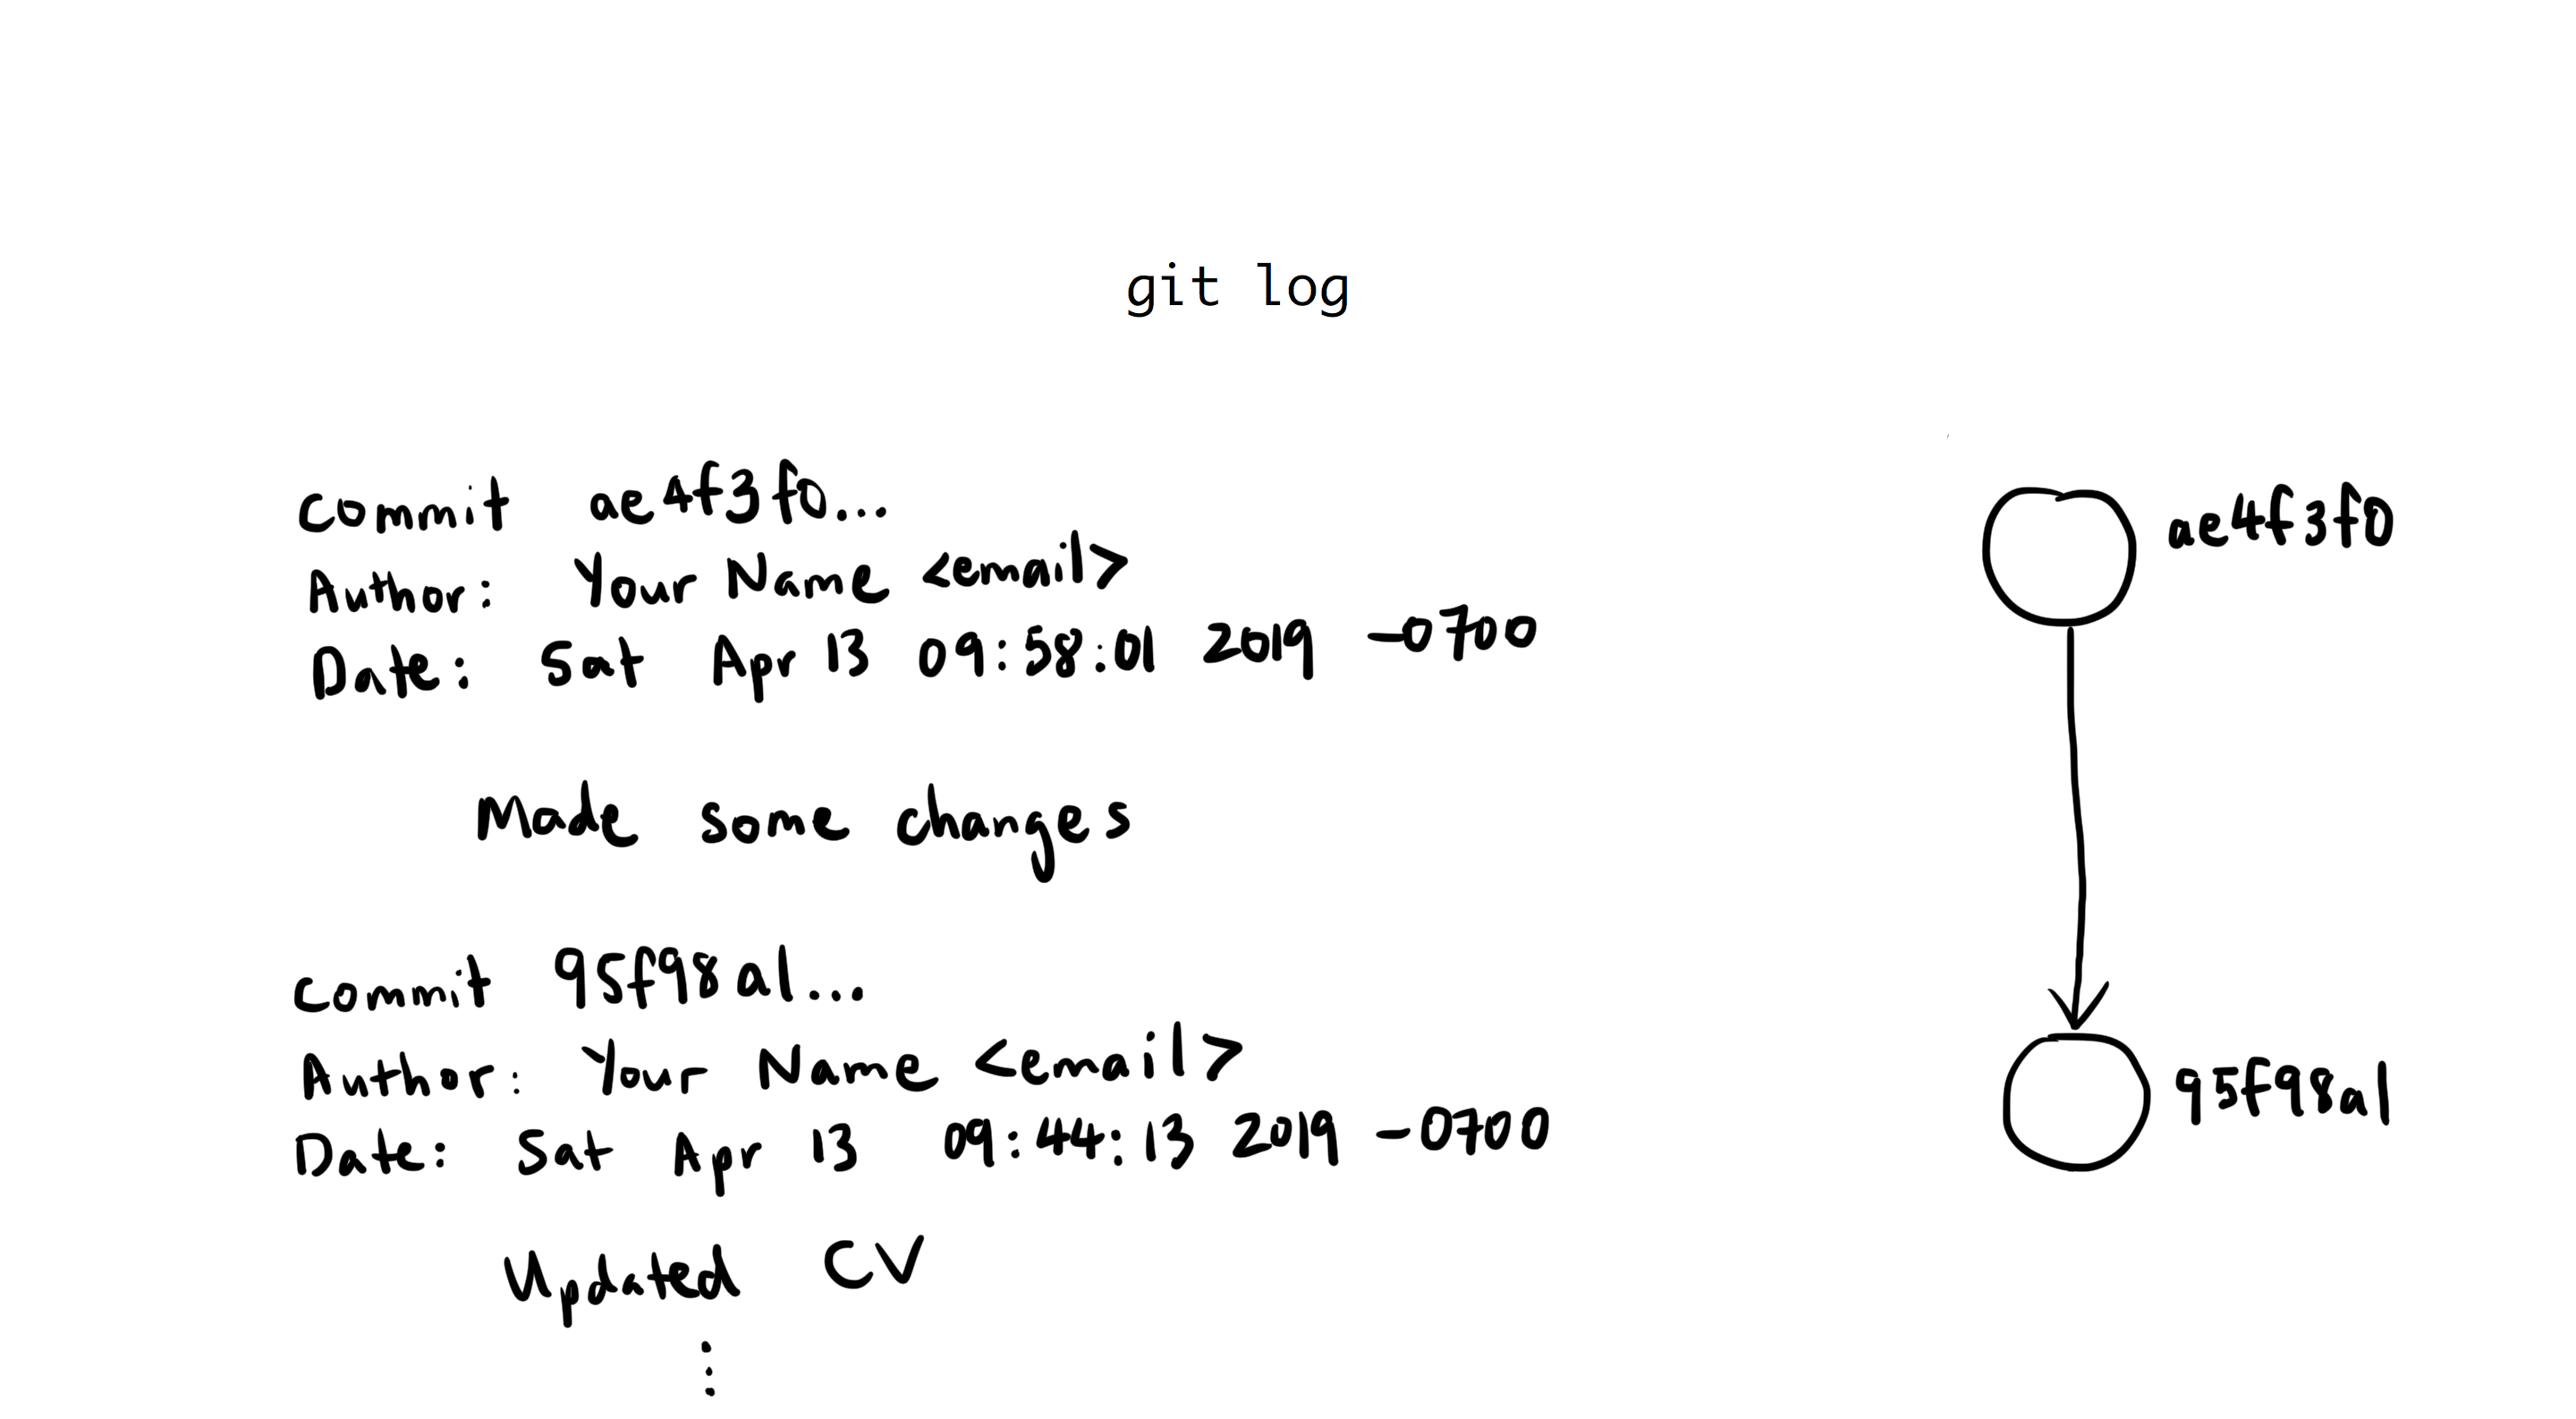 git log
commit ae4f3f0...
Author: Your Name <email>
Date: Sat Apr 13 09:58:01 2019 -0700
Made some changes
commit 95f98a1...
Author: Your Name <email>
Date: Sat Apr 13 09:44:13 2019 -0700
Updated CV
⋮
ae4f3f0
95f98a1